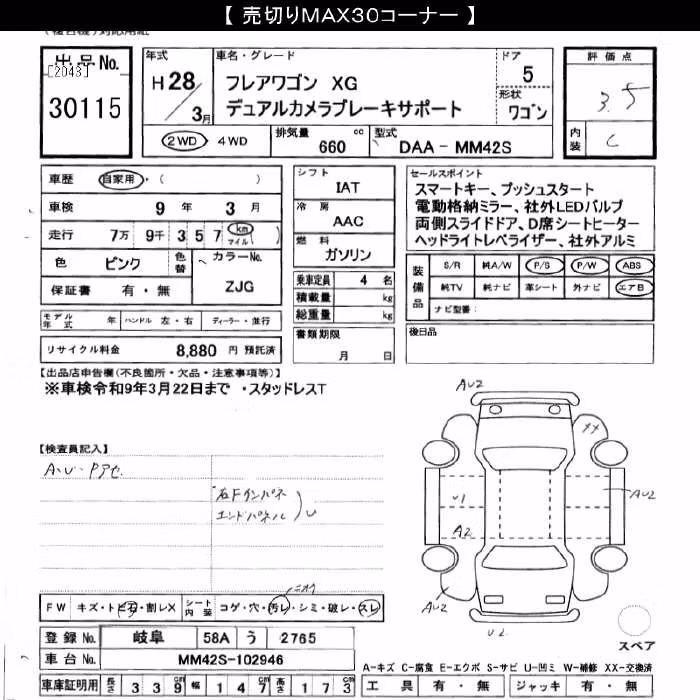 【 売切りMAX30コーナー 】
出品No.
[2043]
30115
年式
H 28/3月
車名・グレード
フレアワゴン XG
デュアルカメラブレーキサポート
ドア
5
形状
ワゴン
評価点
3.5
内装
C
2WD・4WD
排気量 660 cc
型式 DAA-MM42S
車歴 自家用・( )
車検 9年 3月
走行 7万 9千 3 5 7 km マイル ( )
色 ピンク 色替 カラーNo. ZJG
保証書 有・無
モデル年式 年 ハンドル 左・右 ディーラー・並行
リサイクル料金 8,880 円 預託済
シフト
IAT
冷房
AAC
燃料
ガソリン
乗車定員 4 名
積載量 kg
総重量 kg
書類期限
月 日
セールスポイント
スマートキー、プッシュスタート
電動格納ミラー、社外LEDバルブ
両側スライドドア、D席シートヒーター
ヘッドライトレベライザー、社外アルミ
装備品
S/R 純A/W P/S P/W ABS
純TV 純ナビ 革シート 外ナビ エアB
ナビ型番:
後日品
【出品店申告欄(不良箇所・欠品・注意事項等)】
※車検令和9年3月22日まで ・スタッドレスT
【検査員記入】
A・U・Pアセ
右Fインパネ
エンドパネル ) U
AU2
XX
U1
AU2
A2
AU2
U2
スペア
ニオイ
FW キズ・トビ石・割レX シート内装 コゲ・穴・汚レ・シミ・破レ・スレ
登録No. 岐阜 58A う 2765
車台No. MM42S-102946
車庫証明用 長さ 3 3 9 cm 幅 1 4 7 cm 高さ 1 7 3 cm
A-キズ C-腐食 E-エクボ S-サビ U-凹ミ W-補修 XX-交換済
工具 有・無 ジャッキ 有・無